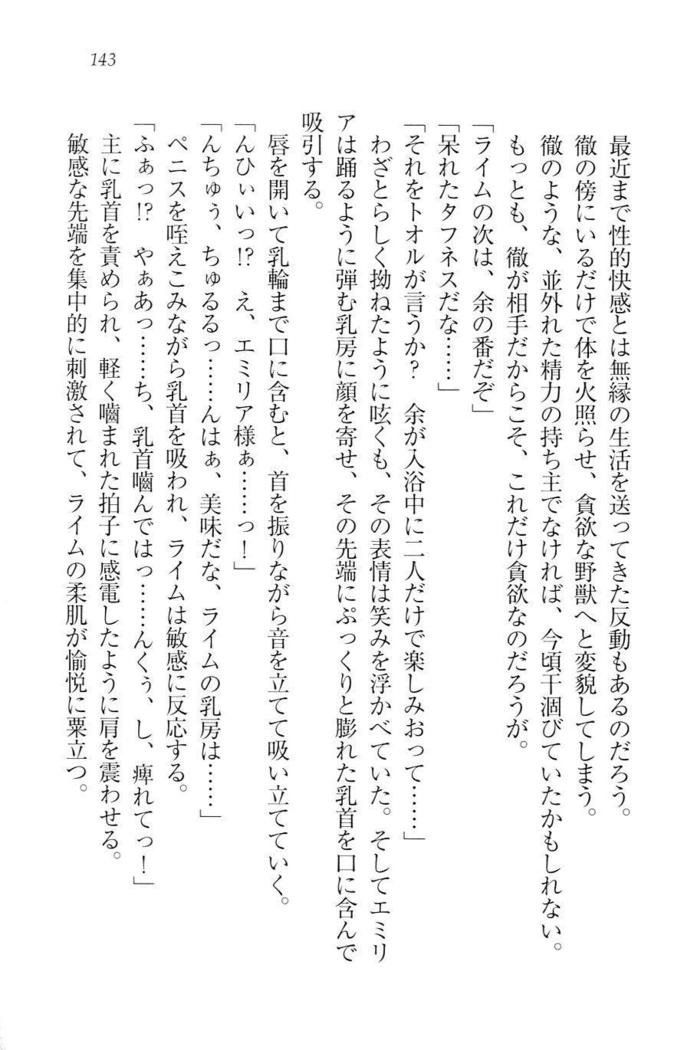 143
最近まで性的快感とは無縁の生活を送ってきた反動もあるのだろう。
徹の傍にいるだけで体を火照らせ、貪欲な野獣へと変貌してしまう。
徹のような、並外れた精力の持ち主でなければ、今頃干涸びていたかもしれない。
もっとも、徹が相手だからこそ、これだけ貪欲なのだろうが。
「ライムの次は、余の番だぞ」
「呆れたタフネスだな……」
「それをトオルが言うか？　余が入浴中に二人だけで楽しみおって……」
わざとらしく拗ねたように呟くも、その表情は笑みを浮かべていた。そしてエミリ
アは踊るように弾む乳房に顔を寄せ、その先端にぷっくりと膨れた乳首を口に含んで
吸引する。
唇を開いて乳輪まで口に含むと、首を振りながら音を立てて吸い立てていく。
「んひぃいっ!?　え、エミリア様ぁ……っ！」
「んちゅぅ、ちゅるるっ……んはぁ、美味だな、ライムの乳房は……」
ペニスを咥えこみながら乳首を吸われ、ライムは敏感に反応する。
「ふぁっ!?　やぁあっ……ち、乳首嚙んではっ……んくぅ、し、痺れてっ！」
主に乳首を責められ、軽く嚙まれた拍子に感電したように肩を震わせる。
敏感な先端を集中的に刺激されて、ライムの柔肌が愉悦に粟立つ。